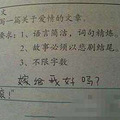 文
写一篇关于爱情的文章。
要求：1、语言简洁，词句精炼。
2、故事必须以悲剧结尾。
3、不限字数
嫁给我好吗？
滚！